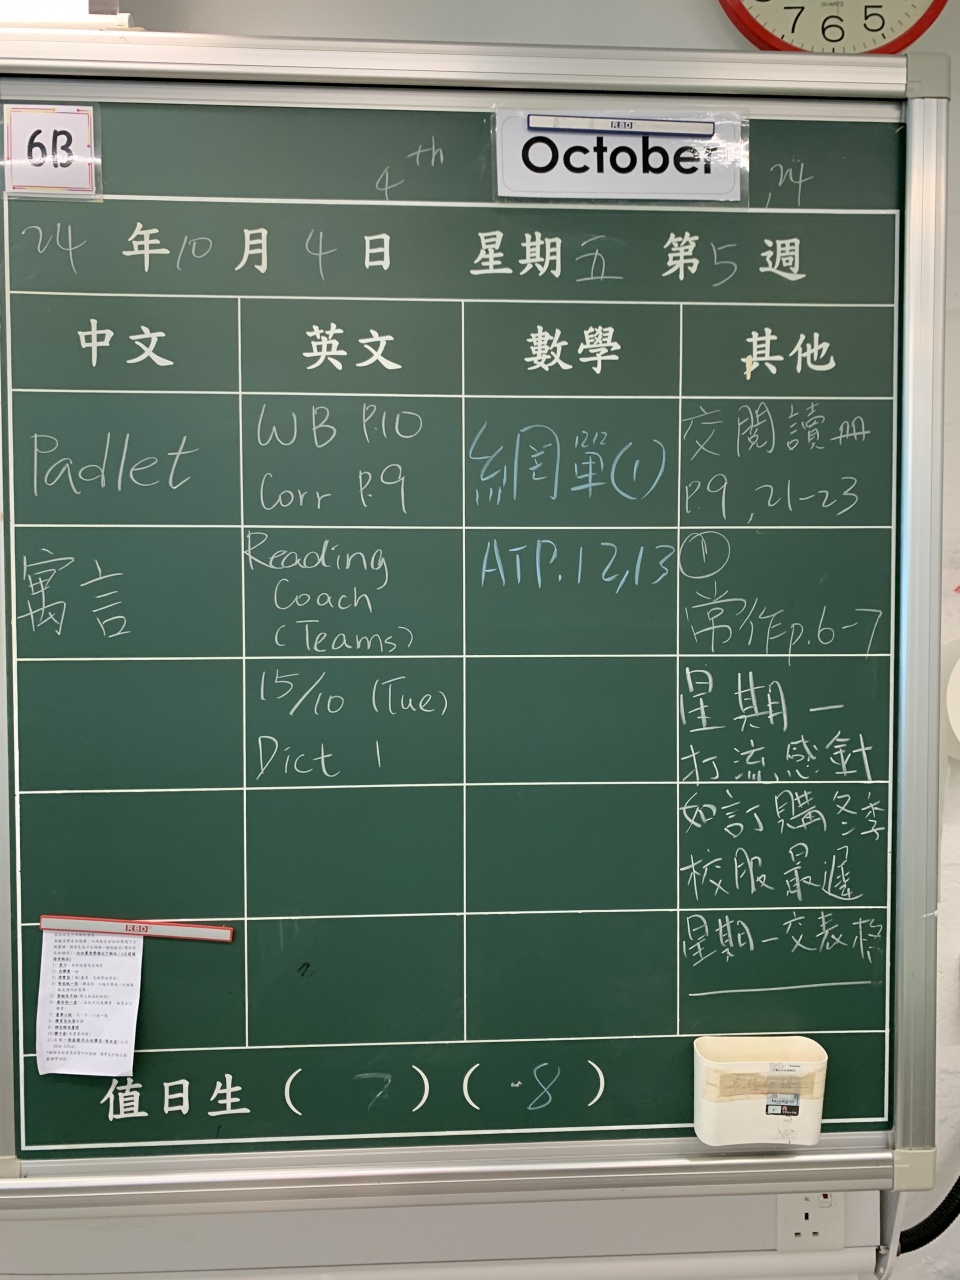 7 6 5
QUARTZ
6B
4th
RBD
October
,24
24 年 10 月 4 日 星期 五 第 5 週
中文 英文 數學 其他
Padlet
WB P.10
Corr P.9
網單①
交閱讀冊
P.9 , 21-23
寓言
Reading
Coach
(Teams)
ATP.12,13
①
常作p.6-7
15/10 (Tue)
Dict 1
星期一
打流感針
如訂購冬季
校服最遲
RBD
星期一交表格
值日生 ( 7 ) ( 8 )